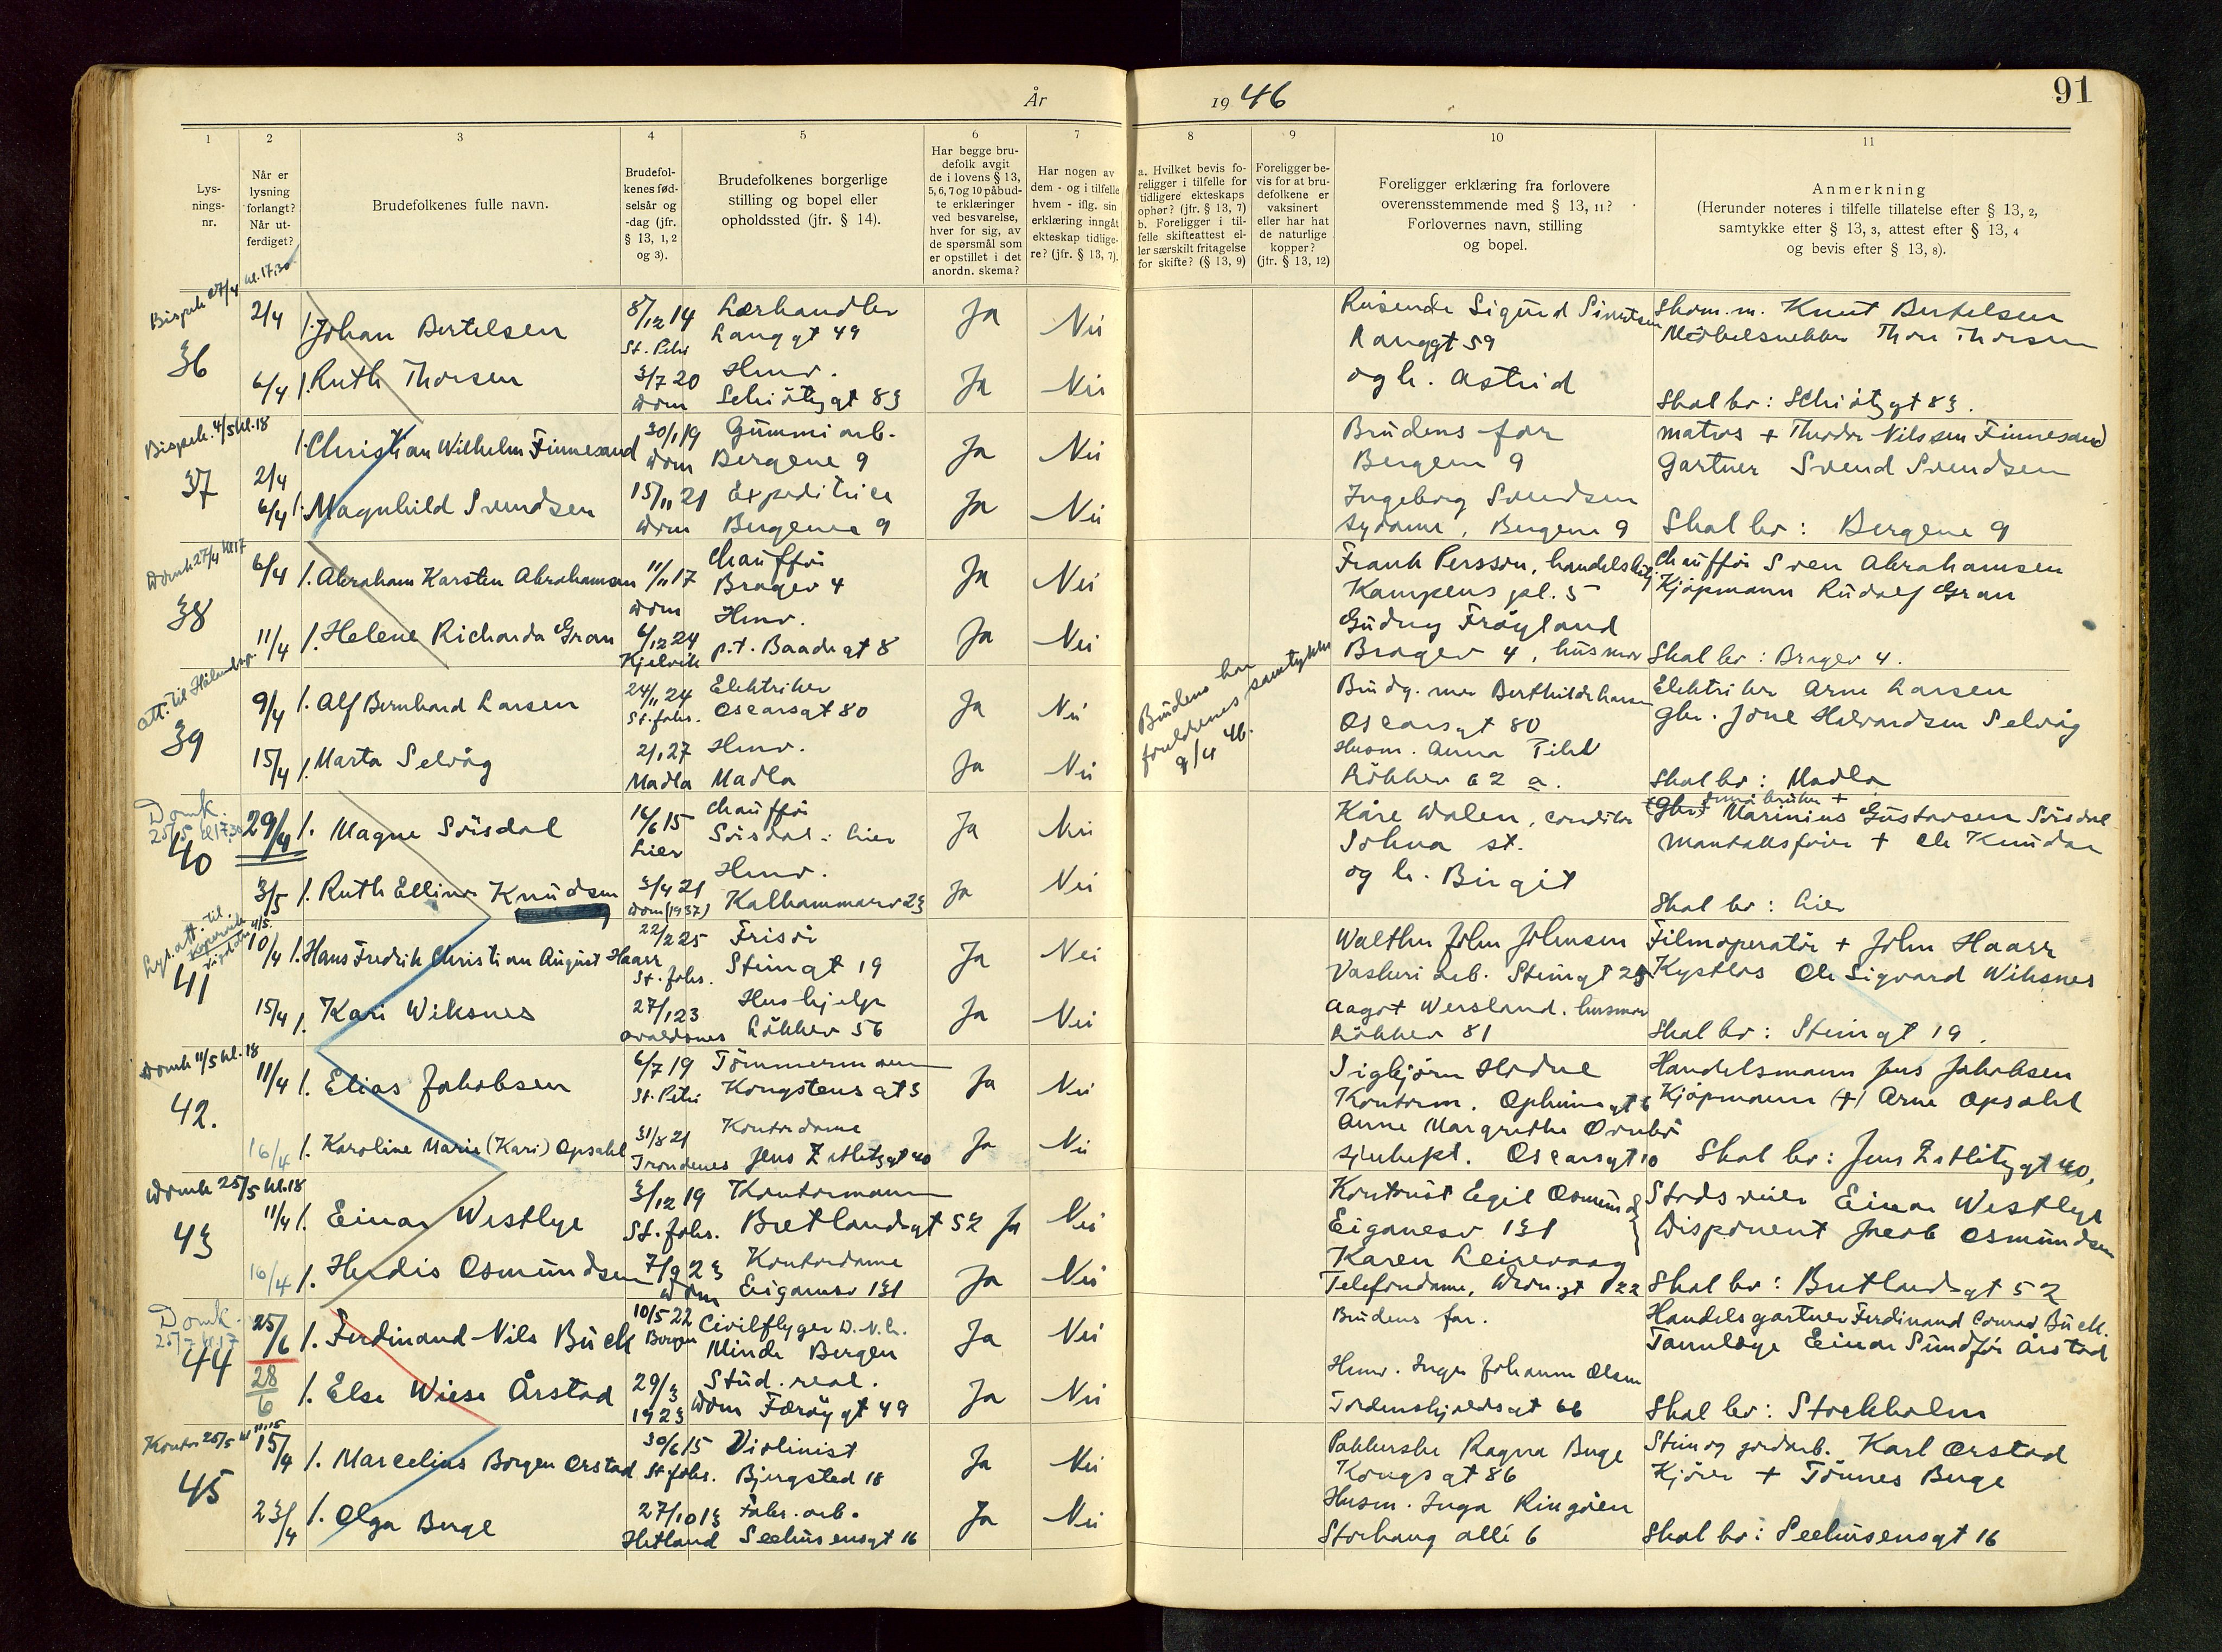 År 19 46
91
1 2 3 4 5 6 7 8 9 10 11
Lys-
nings-
nr.
Når er
lysning
forlangt?
Når ut-
ferdiget?
Brudefolkenes fulle navn.
Brudefol-
kenes fød-
selsår og
-dag (jfr.
§ 13, 1, 2
og 3).
Brudefolkenes borgerlige
stilling og bopel eller
opholdssted (jfr. § 14).
Har begge bru-
defolk avgit
de i lovens § 13,
5, 6, 7 og 10 påbud-
te erklæringer
ved besvarelse,
hver for sig, av
de spørsmål som
er opstillet i det
anordn. skema?
Har nogen av
dem - og i tilfelle
hvem - iflg. sin
erklæring inngåt
ekteskap tidlige-
re? (jfr. § 13, 7).
a. Hvilket bevis fo-
religger i tilfelle for
tidligere ekteskaps
ophør? (jfr. § 13, 7)
b. Foreligger i til-
felle skifteattest el-
ler særskilt fritagelse
for skifte? (§ 13, 9)
Foreligger be-
vis for at bru-
defolkene er
vaksinert
eller har hat
de naturlige
kopper?
(jfr. § 13, 12)
Foreligger erklæring fra forlovere
overensstemmende med § 13, 11?
Forlovernes navn, stilling
og bopel.
Anmerkning
(Herunder noteres i tilfelle tillatelse efter § 13, 2,
samtykke efter § 13, 3, attest efter § 13, 4
og bevis efter § 13, 8).
Bispek 27/4 kl. 17,30
36
2/4 1. Johan Bertelsen 8/12 14 Lærhandler Ja Nei
St. Petri Langgt 49
6/4 1. Ruth Thorsen 3/7 20 Hmv. Ja Nei
Dom Schiötzgt 83
Reisende Sigurd Simonsen
Langgt 59
og h. Astrid
Skom. m. Knut Bertelsen
Möbelsnekker Thor Thorsen
Skal bo: Schiötzgt 83.
Bispek. 4/5 kl. 18
37
2/4 1. Christian Wilhelm Finnesand 30/1 19 Gummiarb. Ja Nei
Dom Bergene 9
6/4 1. Magnhild Svendsen 15/11 21 Expeditrise Ja Nei
Dom Bergene 9
Brudens far
Bergene 9
Ingeborg Svendsen
sydame, Bergene 9
Matros + Theodor Nilssen Finnesand
Gartner Svend Svendsen
Skal bo: Bergene 9
Domk 27/4 kl 17
38
6/4 1. Abraham Karsten Abrahamsen 11/11 17 Chaufför Ja Nei
Dom Bragev 4
11/4 1. Helene Richarda Gran 6/12 24 Hmv. Ja Nei
Kjelvik p.t. Baadsgt 8
Frank Persson, handelsbetj
Kampens pl. 5
Gudny Fröyland
Bragev 4, husmor
Chaufför Sven Abrahamsen
Kjöpmann Rudolf Gran
Skal bo: Bragev 4.
Att. til Hålandspr.
39
9/4 1. Alf Bernhard Larsen 24/11 24 Elektriker Ja Nei
St. Johs. Oscarsgt 80
15/4 1. Marta Selvåg 2/1 27 Hmv. Ja Nei
Madla Madla
Brudens har
foreldrenes samtykke
9/4 46.
Brudg. mor Berthilde Larsen
Oscarsgt 80
Husm. Anna
Lökkev 62 a.
Elektriker Arne Larsen
Gbr. Jone Halvardsen Selvåg
Skal bo: Madla
Domk.
25/5 kl 17.30
40
29/4 1. Magne Soisdal 16/6 15 Chaufför Ja Nei
Lier Soisdal: Lier
3/5 1. Ruth Ellinor Knudsen 3/4 21 Hmv. Ja Nei
Dom (1937) Kalhammarv 23
Kåre Walen, conditor
Solvna st.
og h. Birgit
småbruker +
Marinius Gustavsen Soisdal
Mantallsförer + Ole Knudsen
Skal bo: Lier
Lys. att. til
11/5.
41
10/4 1. Hans Fredrik Christian August Haarr 22/2 25 Frisör Ja Nei
St. Johs. Steingt 19
15/4 1. Kari Wiksnes 27/1 23 Hushjelp Ja Nei
Avaldsnes Lökkev 56
Walther John Johnsen
Vaskeri arb. Steingt 25
Aagot Wersland. husmor
Lökkev 81
Filmoperatör + John Haarr
Kystlos Ole Sigvard Wiksnes
Skal bo: Steingt 19.
Domk 11/5 kl. 18
42.
11/4 1. Elias Jakobsen 6/7 19 Tömmermann Ja Nei
St. Petri Kongstensgt 3
16/4 1. Karoline Marie (Kari) Opsahl 31/8 21 Kontordame Ja Nei
Trondenes Jens Zetlitzgt 40
Sigbjörn Hodne
Kontorm. Opheimsgt 6
Anne Margrethe
sjukepl. Oscarsgt 10
Handelsmann Jens Jakobsen
Kjöpmann (+) Arne Opsahl
Skal bo: Jens Zetlitzgt 40.
Domk 25/5 kl. 18
43
11/4 1. Einar Westlye 3/12 19 Kontormann Ja Nei
St. Johs. Bretlandsgt 52
16/4 1. Herdis Osmundsen 7/9 23 Kontordame Ja Nei
Dom Eiganesv 131
Kontorist Egil Osmund
Eiganesv 131
Karen Leirevaag
Telefondame, gt 22
Stadsreier Einar Westlye
Disponent Jacob Osmundsen
Skal bo: Bretlandsgt 52
Domk.
25/7 kl. 17
44
25/6 1. Ferdinand Nils Buck 10/5 22 Civilflyger D.N.L. Ja Nei
Bergen Minde Bergen
28/6 1. Else Wiese Årstad 29/3 Stud. real. Ja Nei
1923 Dom Færöygt 49
Brudens far.
Hmv. Inger Johanne Olsen
Tordenskjoldsgt 66
Handelsgartner Ferdinand Conrad Buck.
Tannlæge Einar Sundför Årstad
Skal bo: Stockholm
Kontor 25/5 kl 11,15
45
15/4 1. Marcelius Borgen Orstad 30/6 15 Violinist Ja Nei
St. Johs. Bjergsted 18
23/4 1. Olga Berge 27/10 13 Fabr. arb. Ja Nei
Hetland Seehusensgt 16
Pakkerske Ragna Berge
Kongsgt 86
Husm. Inga Ringöen
Storhaug allé 6
Stein og jordarb. Karl Orstad
Kjörer + Tönnes Berge
Skal bo: Seehusensgt 16